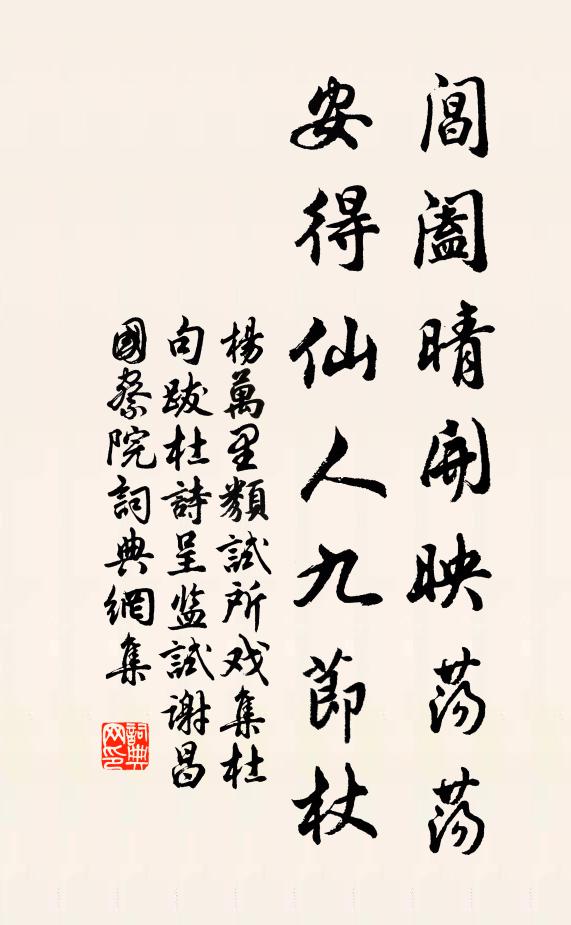 閶闔晴開映蕩蕩
安得仙人九節杖
楊萬里類試所戏集杜
句跋杜詩呈监試谢昌
國察院詞典網集
詞典网印